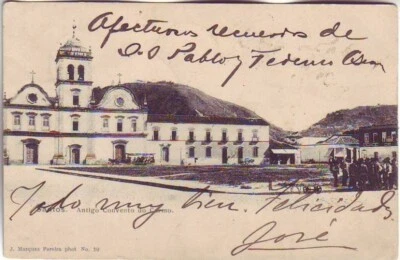 Afectuosos recuerdos de
Pablo y
SANTOS. Antigo Convento do Carmo.
Todo muy bien. Felicidad
José
J. Marques Pereira phot No.